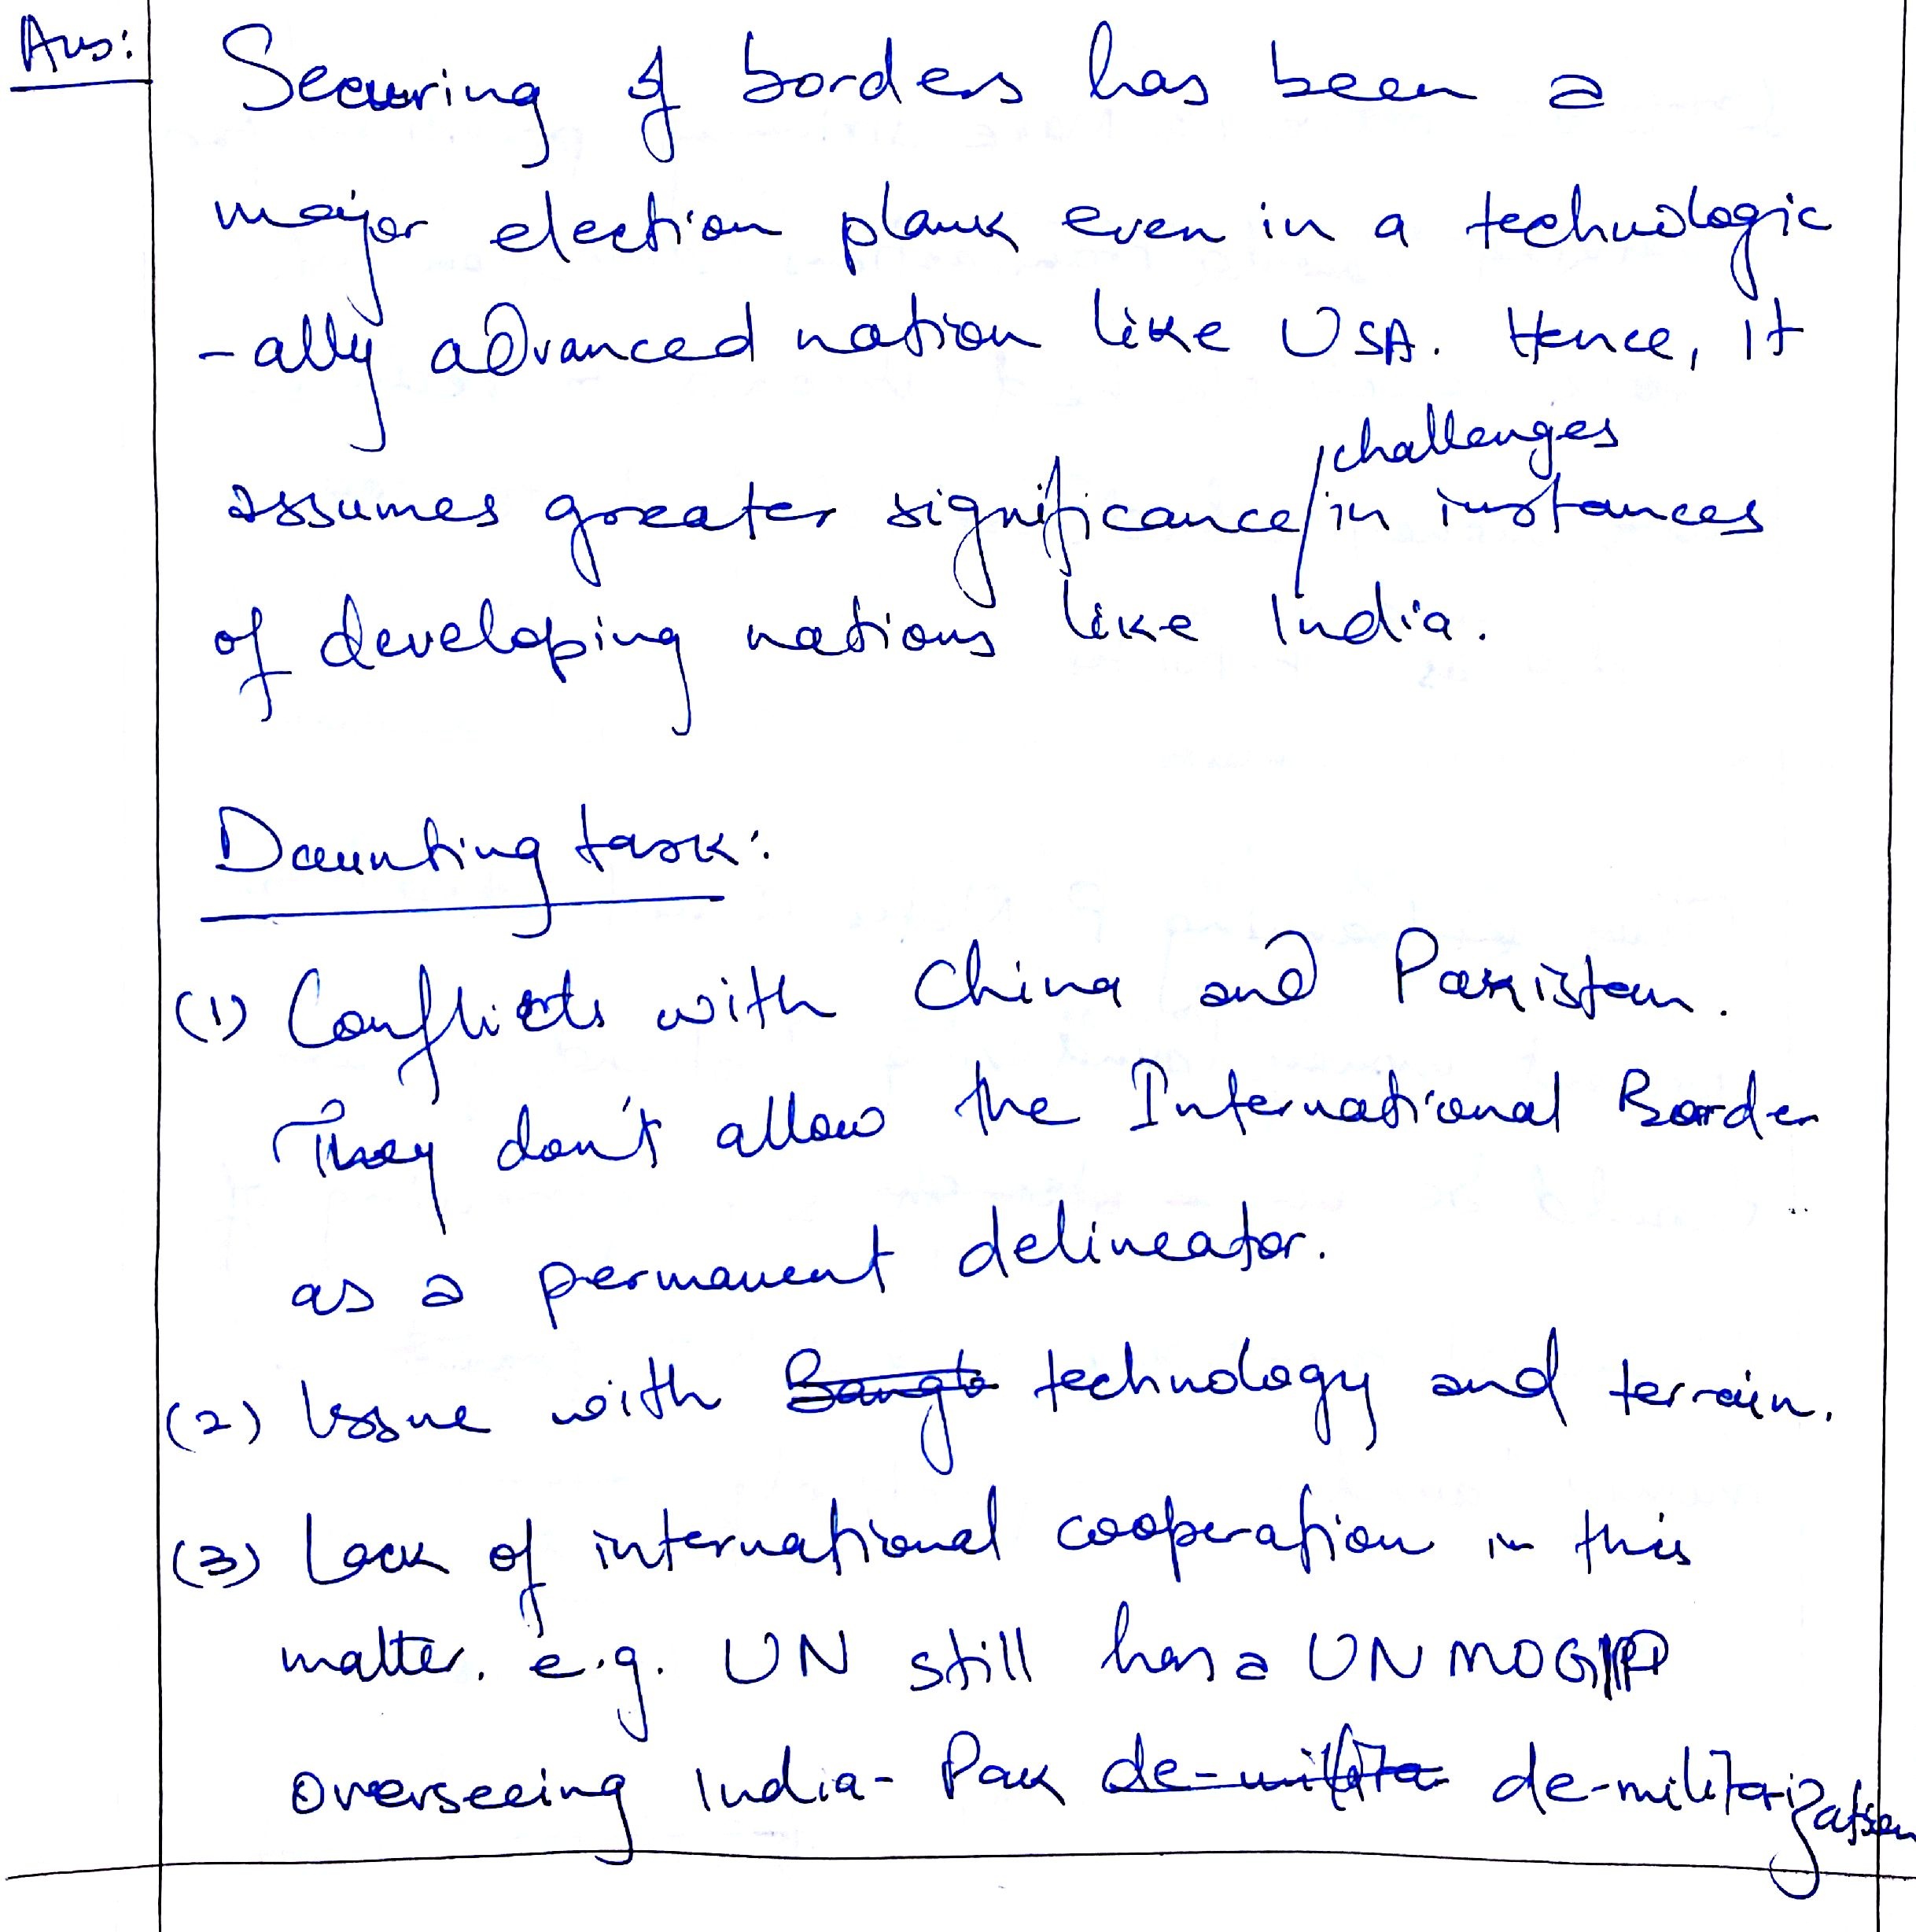 Ans:
Securing of borders has been a
major election plank even in a technologic
-ally advanced nation like USA. Hence, it
challenges
assumes greater significance/in instances
of developing nations like India.
Daunting task:
(1) Conflicts with China and Pakistan.
They don't allow the International Border
as a permanent delineator.
(2) Issue with technology and terrain.
(3) Lack of international cooperation in this
matter. e.g. UN still has a UNMOGIP
overseeing India-Pak de-militarization